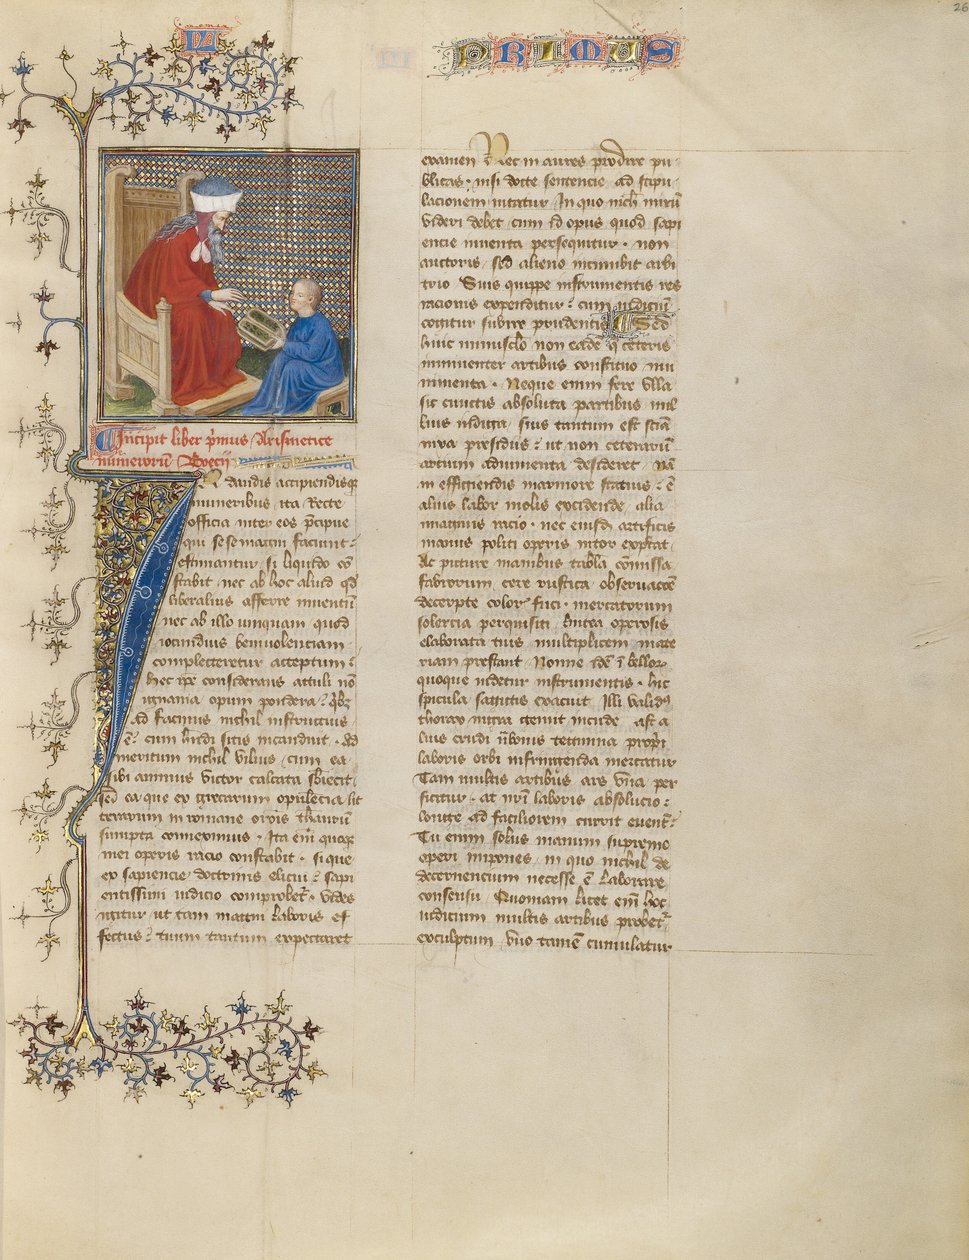 26
LI PRIMUS
Incipit liber p̄mus Arismetice
numerorū Boecii
In dandis accipiendisqꝫ
muneribus, ita Recte
officia inter eos p̄cipue
qui se se magni faciunt :
estimantur, si liquido cō
stabit nec ab hoc aliud qd̄
liberalius afferre inuentū
nec ab illo umquam quod
iocundius beniuolenciam
complecteretur acceptum :
hec ip̄e considerans attuli nō
ignauia opum pondera : qꝫbꝫ
Ad facinus nichil instructius
ē : cum habēdi sitis incanduit · Ad
meritum nichil vilius, cum ea
sibi animus victor calcata sb̄iecit
sed ea que ex grecarum opulēcia lit
terarum in romane or̄nis thaurū
sumpta conueximus · Ita em̄ quoqꝫ
mei operis racio constabit · si que
ex sapiencie doctrinis elicui : sapi
entissimi iudicio comprobet᷑ · vides
igitur ut tam magni laboris ef
fectus : tuum tantum expectaret
examen n̄ nec in aures prodire pu
blicas · nisi docte sentencie ad stipu
lacionem nitatur In quo nichil mirū
videri debet cum id opus quod sapi
encie inuenta persequitur · non
auctoris sed alieno incumbit arbi
trio Suis quippe instrumentis res
racionis expenditur : cum iudiciū
cogitur subire prudentis Sed
huic munusclo non eadē q̄ ceteris
imminenter artibus constituo mu
nimenta · Neque enim fere vlla
sic cunctis absoluta partibus nul
lius indiga, suis tantum est sciā
nixa presidiis : ut non ceterarū
artium adiumenta desideret · nā
in effigiendis marmore statuis : ē
alius labor molis excidende alia
imaginis racio · nec eiusdē artificis
manus politi operis nitor expectat
At picture manibus tabla cōmissa
fabrorum, cere rustica obseruacōe
decerpte color fuci · mercatorum
solercia perquisiti lintea operosis
elaborata tuis multiplicem mate
riam prestant Nonne idē ī bellorꝫ
quoque uidetur instrumentis · hic
spicula sagittis exacuit Illi validꝰ
thorax nigra gemit incude ast a
lius crudi ūbonis tegmina propri
laboris orbi infringenda mercatur
Tam multis artibus ars vna per
ficitur · at nr̄i laboris absolucio :
longe ad faciliorem currit euentū :
Tu enim solus manum supremo
operi impones in quo nichil de
decernencium necesse ē laborare
consensu, Quoniam licet em̄ hoc
iudicium multis artibus probet᷑
excultum, vno tamē cumulatur